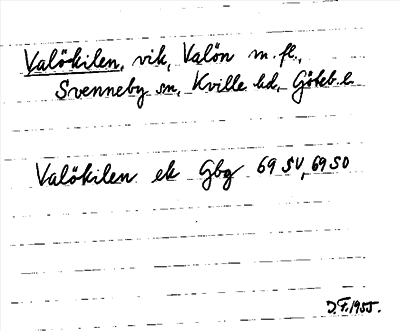 Valökilen, vik, Valön m. fl.,
Svenneby sn, Kville hd, Göteb. l.
Valökilen ek Gbg 69 SV, 69 SO
J.F. 1955.